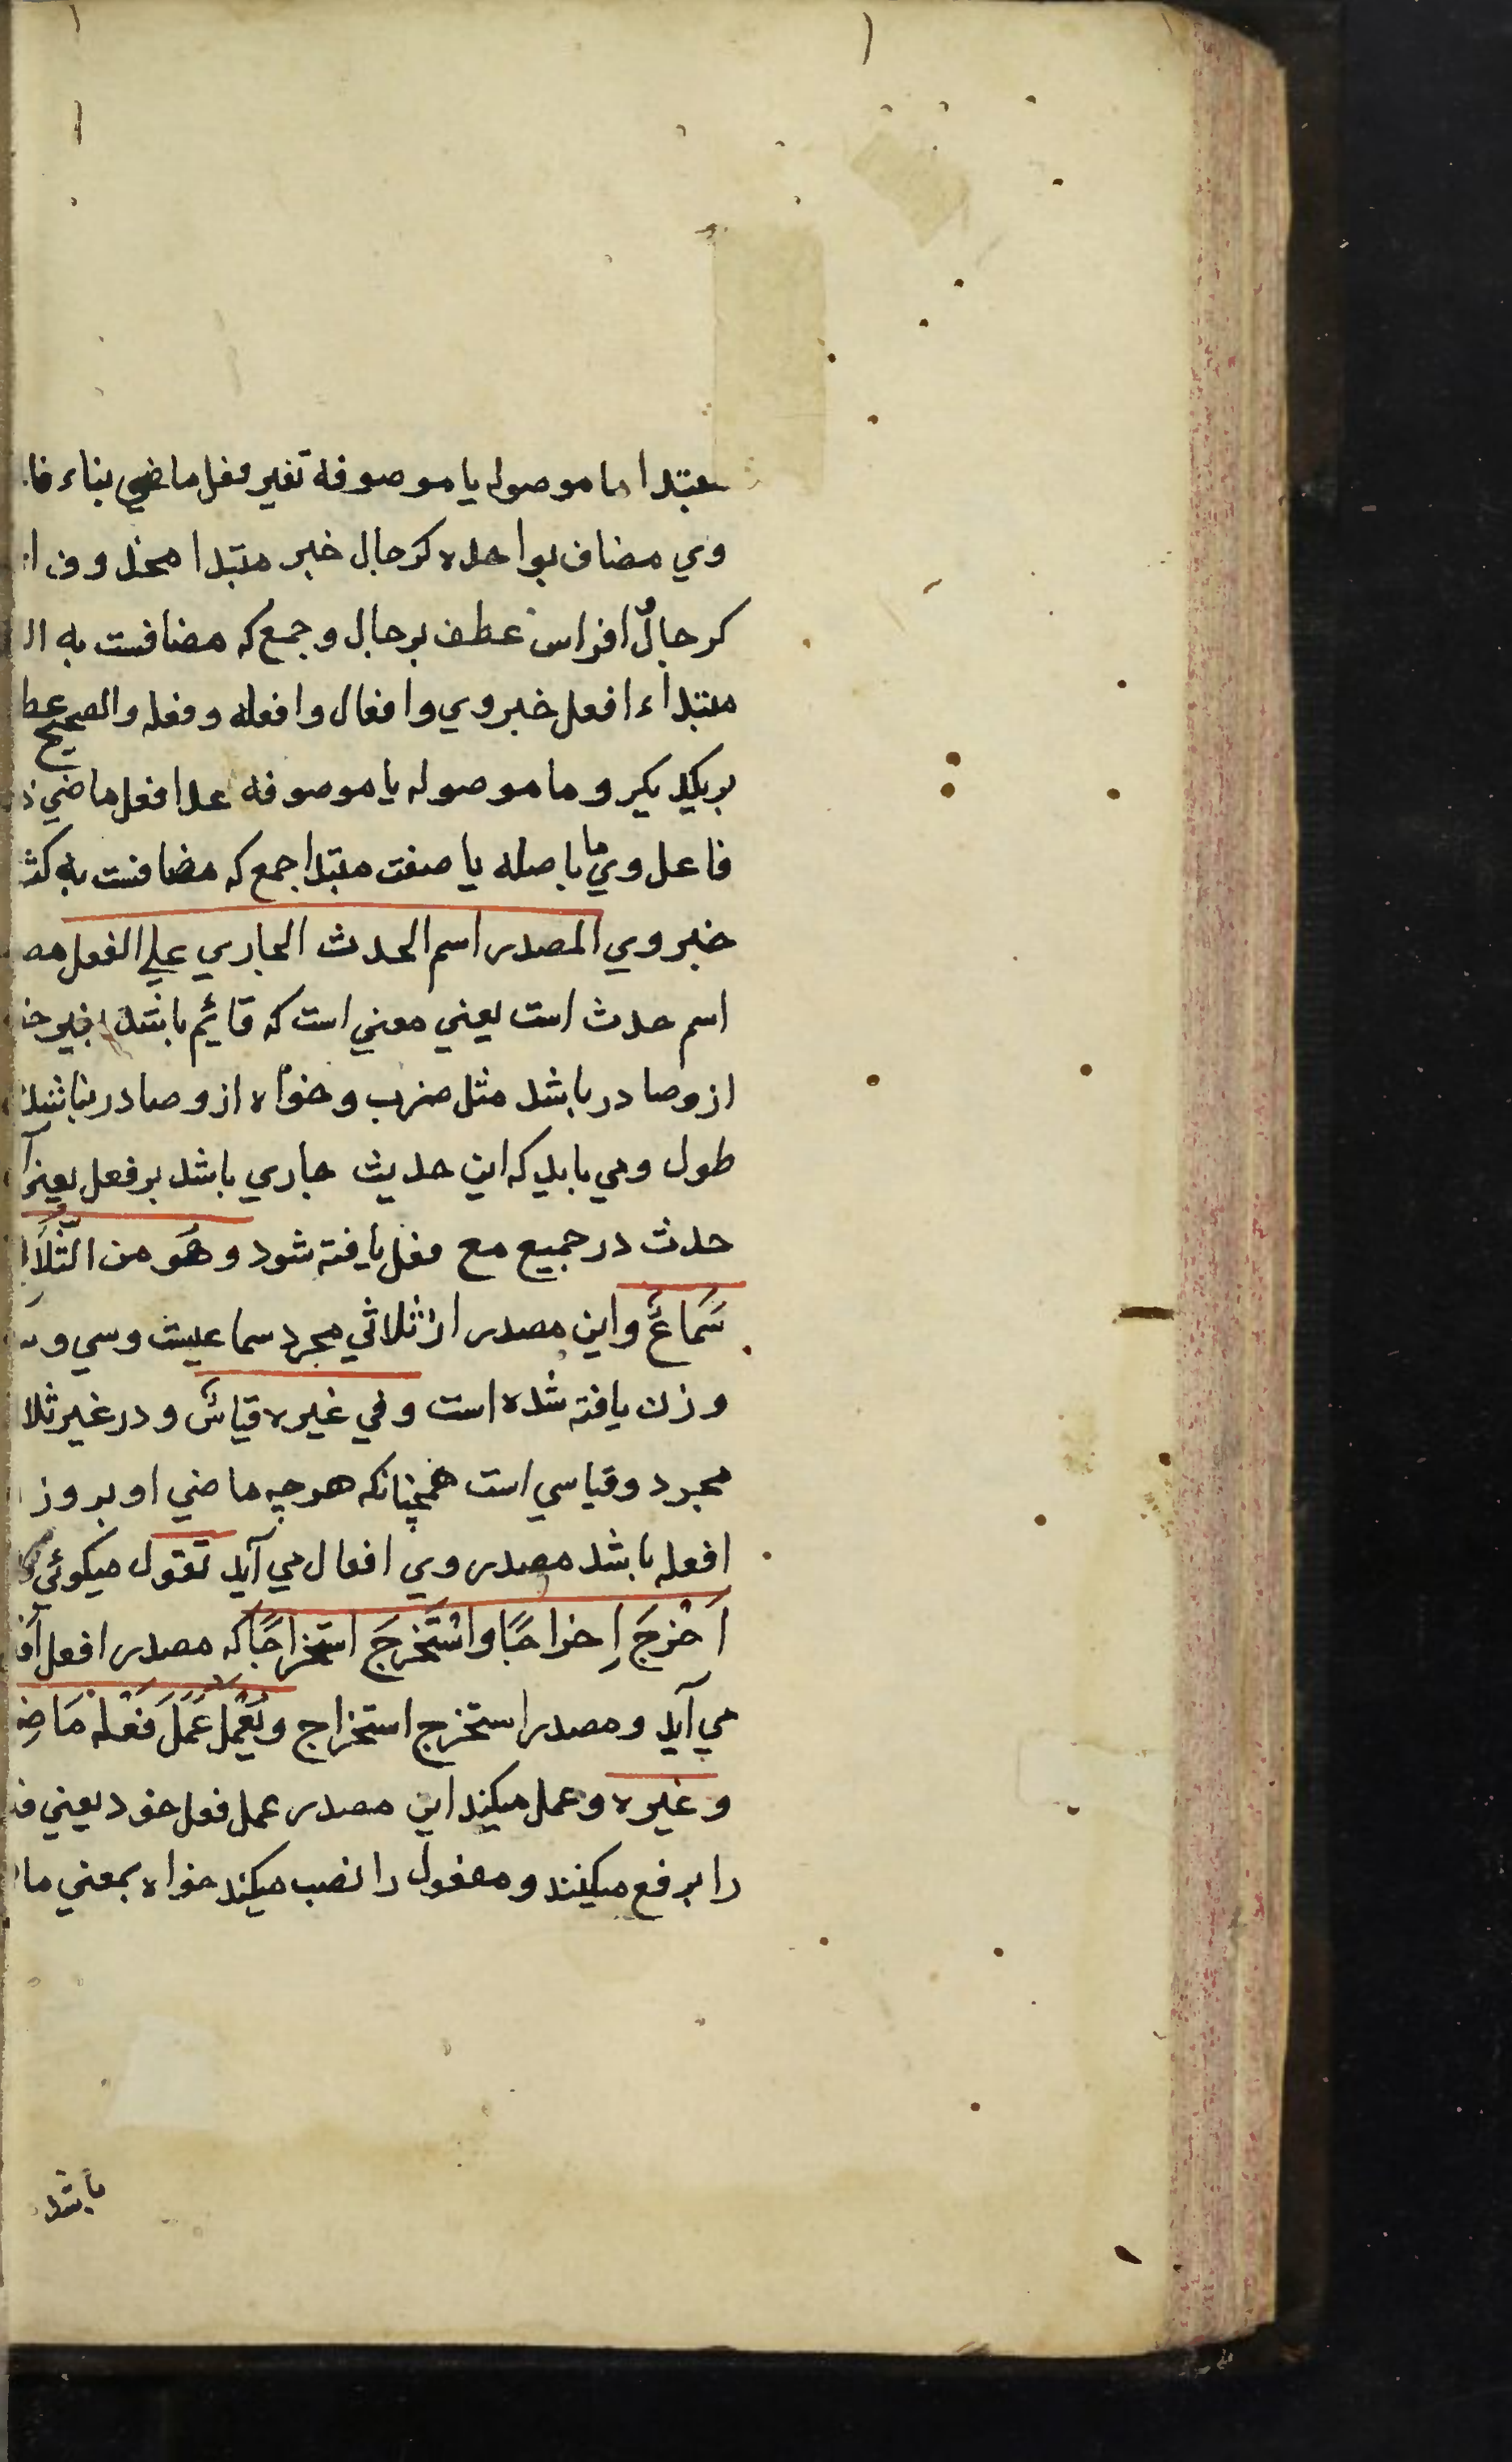 مبتدا ما موصوله يا موصوفه تغير فعل ماضي بناء فا
وي مضاف بواحده كرجال خبر مبتدا محذوف
كرجالٌ افراس عطف برجال وجمع كه مضافست به ال
مبتداء افعل خبر وي وافعال وافعله وفعله والصحيح عط
بريكديكر وما موصوله يا موصوفه عدا فعل ماضي
فاعل وي ما باصله يا صفت مبتدا جمع كه مضافست به كث
خبر وي المصدر اسم الحدث الجاري علي الفعل مص
اسم حدث است يعني معني است كه قائم باشد بغير خ
ازو صادر باشد مثل ضرب وخواه ازو صادر نباشد
طول ومي بايد كه اين حديث جاري باشد بر فعل يعني
حدث در جميع مع فعل يافته شود وهُو من الثّلَا
سَمَاعٌ واين مصدر از ثلاثي مجرد سماعيست وسي و
وزن يافته شده است وفي غيره قياسٌ ودر غير ثلا
مجرد وقياسي است همچنانكه هرچه ماضي او بر وز
افعله باشد مصدر وي افعال مي آيد تقول ميكوئي
اَخْرَجَ اِخراجًا واسْتَخرَجَ استخراجًا كه مصدر افعل اف
مي آيد ومصدر استخرج استخراج ويَعْمَلُ عَمَلَ فَعْلهْ مَاضِ
وغيره وعمل ميكند اين مصدر عمل فعل خود يعني ف
را برفع ميكنند ومفعول را نصب ميكند خواه بمعني ما
باشد